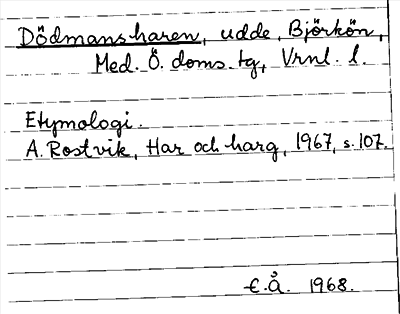 Dödmansharen, udde, Björkön,
Med. Ö. doms. tg, Vrnl. l.
Etymologi.
A. Rostvik, Har och harg, 1967, s. 107.
E.Å. 1968.